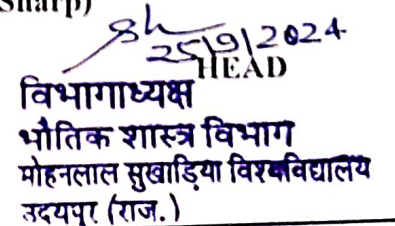 Sharp)
25/9/2024
HEAD
विभागाध्यक्ष
भौतिक शास्त्र विभाग
मोहनलाल सुखाड़िया विश्वविद्यालय
उदयपुर (राज.)